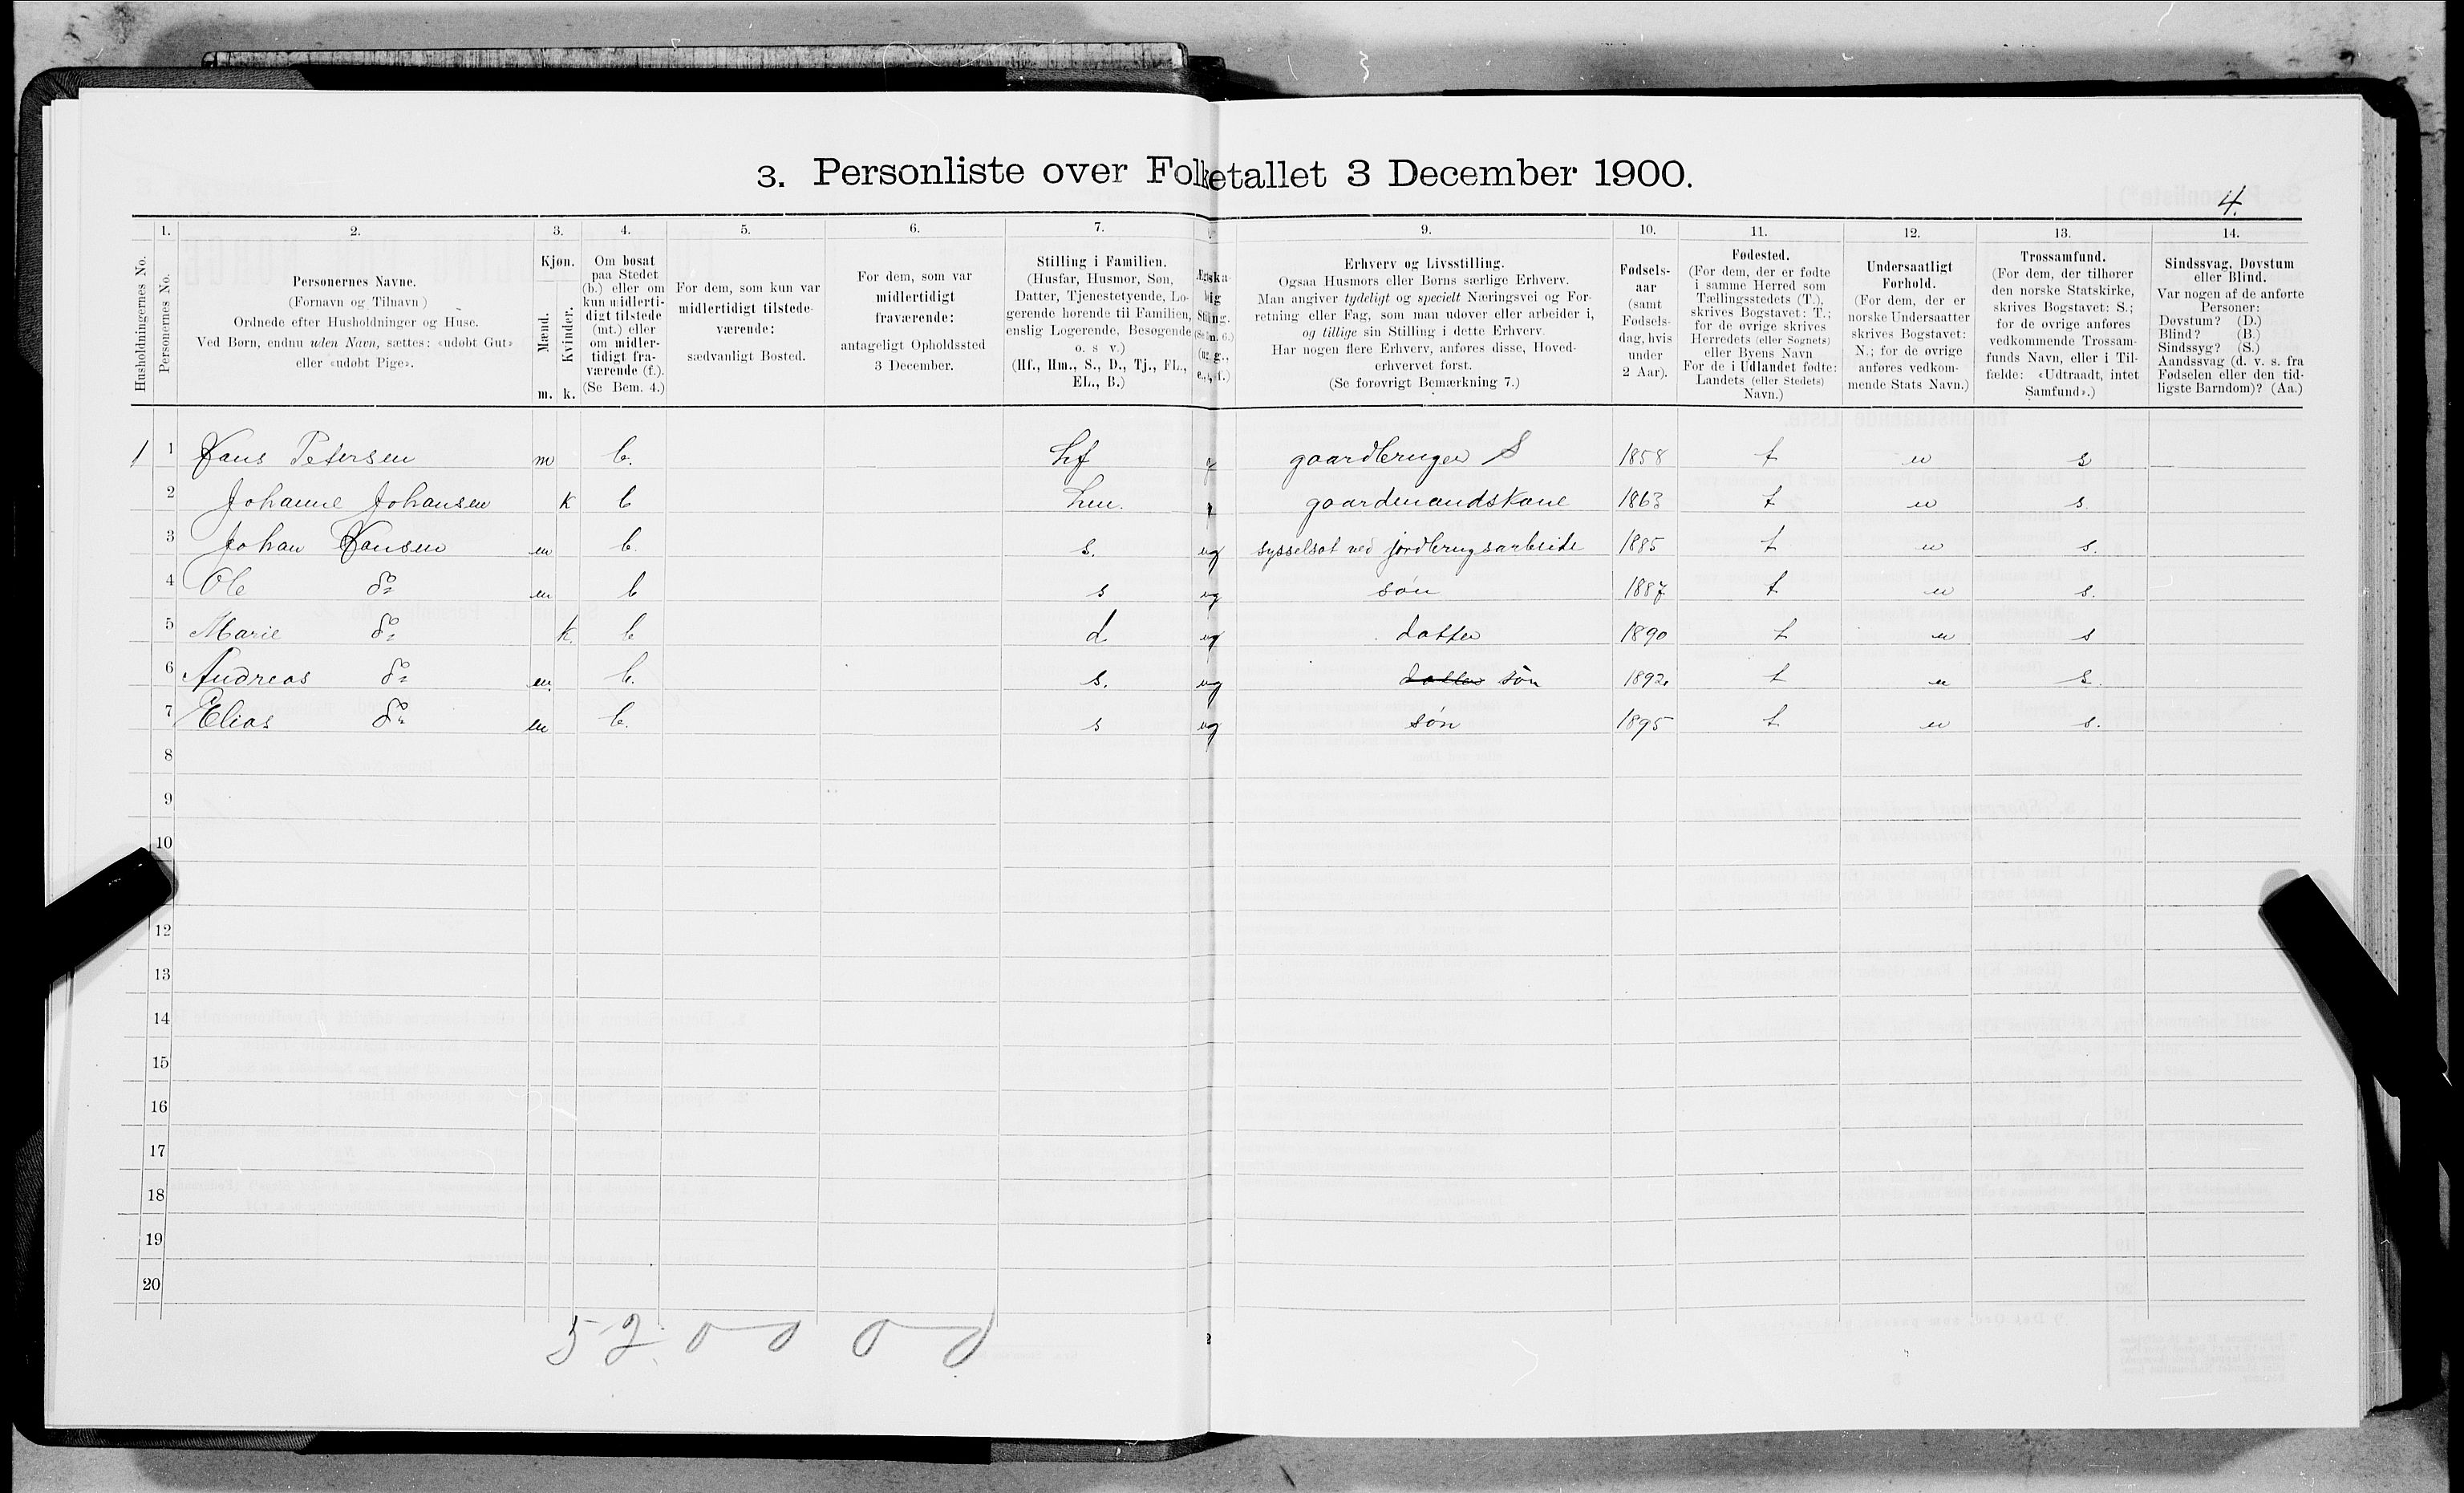 3. Personliste over Folketallet 3 December 1900.
4.
Husholdningernes No.
1.
Personernes No.
2.
Personernes Navne.
(Fornavn og Tilnavn)
Ordnede efter Husholdninger og Huse.
Ved Børn, endnu uden Navn, sættes: «udøbt Gut»
eller «udøbt Pige».
3.
Kjøn.
Mænd.
Kvinder.
m. k.
4.
Om bosat
paa Stedet
(b.) eller om
kun midlerti-
digt tilstede
(mt.) eller
om midler-
tidigt fra-
værende (f.).
(Se Bem. 4.)
5.
For dem, som kun var
midlertidigt tilstede-
værende:
sædvanligt Bosted.
6.
For dem, som var
midlertidigt
fraværende:
antageligt Opholdssted
3 December.
7.
Stilling i Familien.
(Husfar, Husmor, Søn,
Datter, Tjenestetyende, Lo-
gerende hørende til Familien,
enslig Logerende, Besøgende
o. s v.)
(Hf., Hm., S., D., Tj., FL.,
EL., B.)
9.
Erhverv og Livsstilling.
Ogsaa Husmors eller Børns særlige Erhverv.
Man angiver tydeligt og specielt Næringsvei og For-
retning eller Fag, som man udøver eller arbeider i,
og tillige sin Stilling i dette Erhverv.
Har nogen flere Erhverv, anføres disse, Hoved-
erhvervet først.
(Se forøvrigt Bemærkning 7.)
10.
Fødsels-
aar
(samt
Fødsels-
dag, hvis
under
2 Aar).
11.
Fødested.
(For dem, der er fødte
i samme Herred som
Tællingsstedets (T.),
skrives Bogstavet: T.;
for de øvrige skrives
Herredets (eller Sognets)
eller Byens Navn
For de i Udlandet fødte:
Landets (eller Stedets)
Navn.)
12.
Undersaatligt
Forhold.
(For dem, der er
norske Undersaatter
skrives Bogstavet:
N.; for de øvrige
anføres vedkom-
mende Stats Navn.)
13.
Trossamfund.
(For dem, der tilhører
den norske Statskirke,
skrives Bogstavet: S.;
for de øvrige anføres
vedkommende Trossam-
funds Navn, eller i Til-
fælde: «Udtraadt, intet
Samfund».)
14.
Sindssvag, Døvstum
eller Blind.
Var nogen af de anførte
Personer:
Døvstum? (D.)
Blind? (B.)
Sindssyg? (S.)
Aandssvag (d. v. s. fra
Fødselen eller den tid-
ligste Barndom)? (Aa.)
1 1 Hans Petersen m b. hf g gaardbruger S 1858 t n s
2 Johanne Johansen k b hm. gaardmandskone 1863 t n s.
3 Johan Hansen m b. s. ug sysselsat ved jordbrugsarbeide 1885 t n s.
4 Ole do m b s ug søn 1887 t n s.
5 Marie do k. b d ug datter 1890 t n s
6 Andreas do m. b. s. ug datter søn 1892. t n s.
7 Elias do m b. s ug søn 1895 t n s.
8
9
10
12
13
14
15
16
17
18
19
20
5 2 0 0 0 0